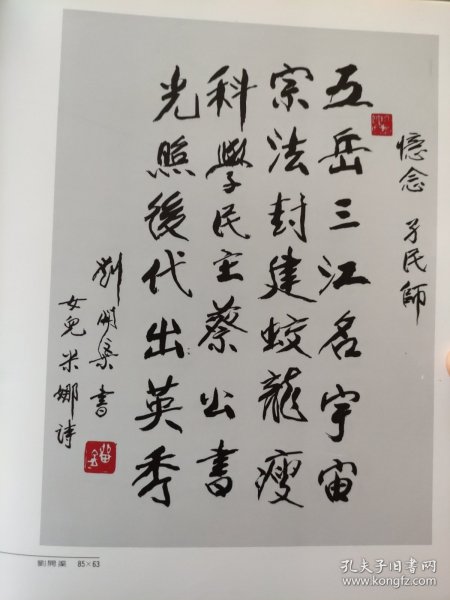 憶念 孑民師
五岳三江名宇宙
宗法封建蛟龍瘦
科學民主蔡公書
光照後代出英秀
劉開渠書
女兒米娜詩
劉開渠 85×63
孔夫子旧书网
www.kongfz.com